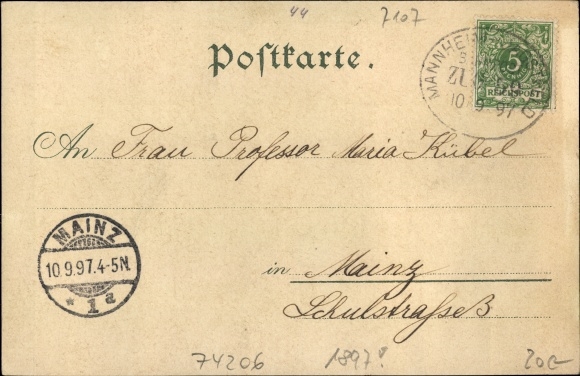 44
7107
Postkarte.
MANNHEIM
10 9 97
5
REICHSPOST
An Frau Professor Maria Kübel
MAINZ
10.9.97.4-5N.
* 1 a
in Mainz
Schulstrasse
74206
1897!
20.-